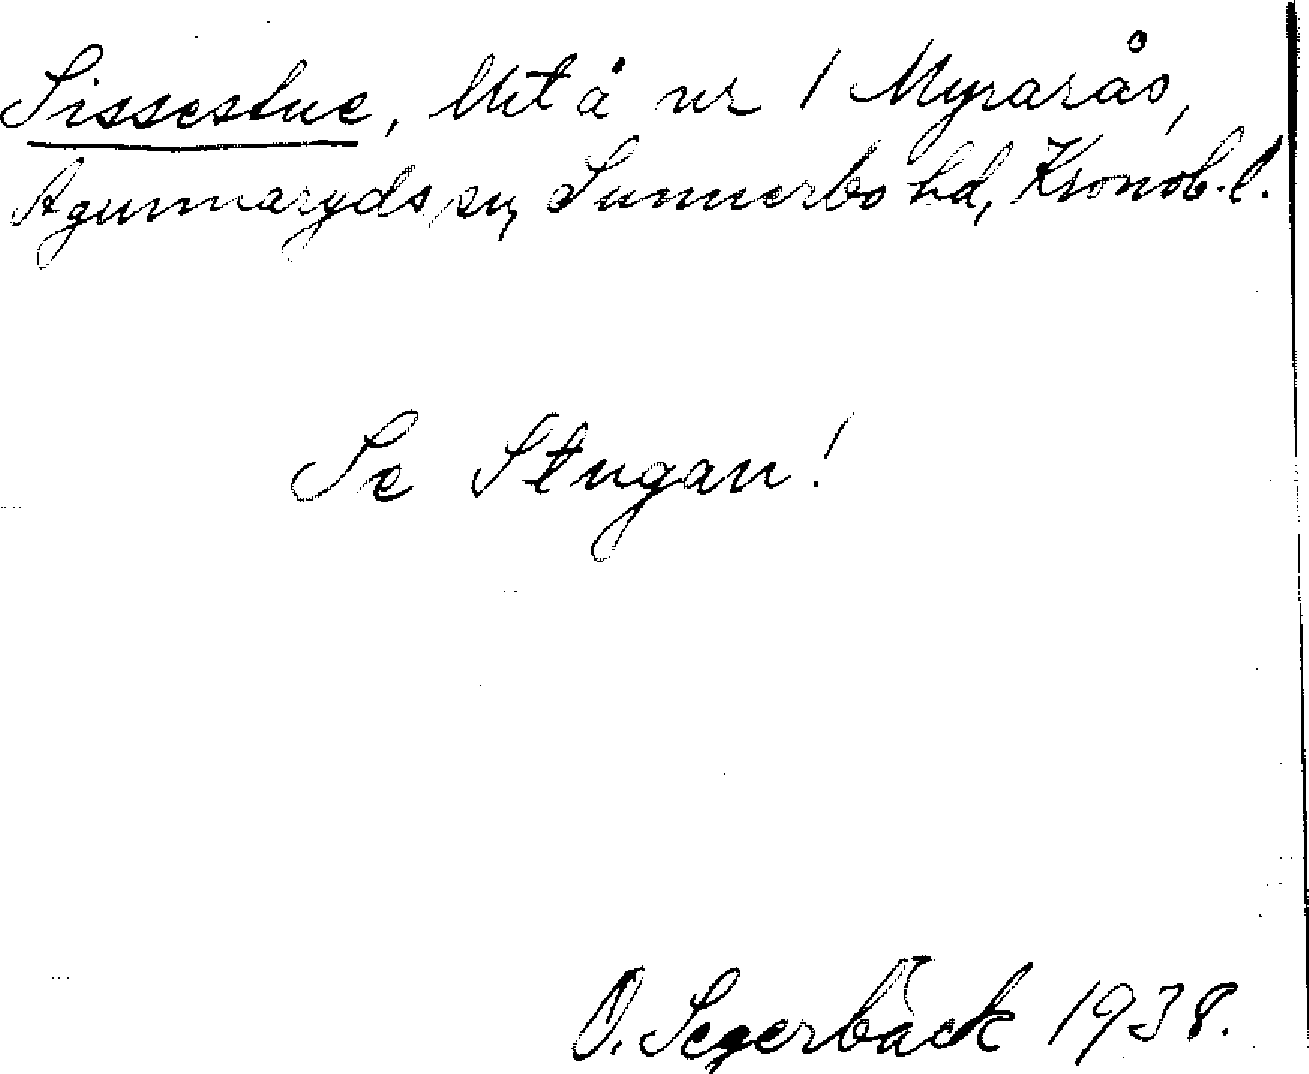 Sissestue, Ut å nr 1 Myrarås,
Agunnaryds sn, Sunnerbo hd, Kronob. l.
Se Stugan!
O. Segerbäck 1938.